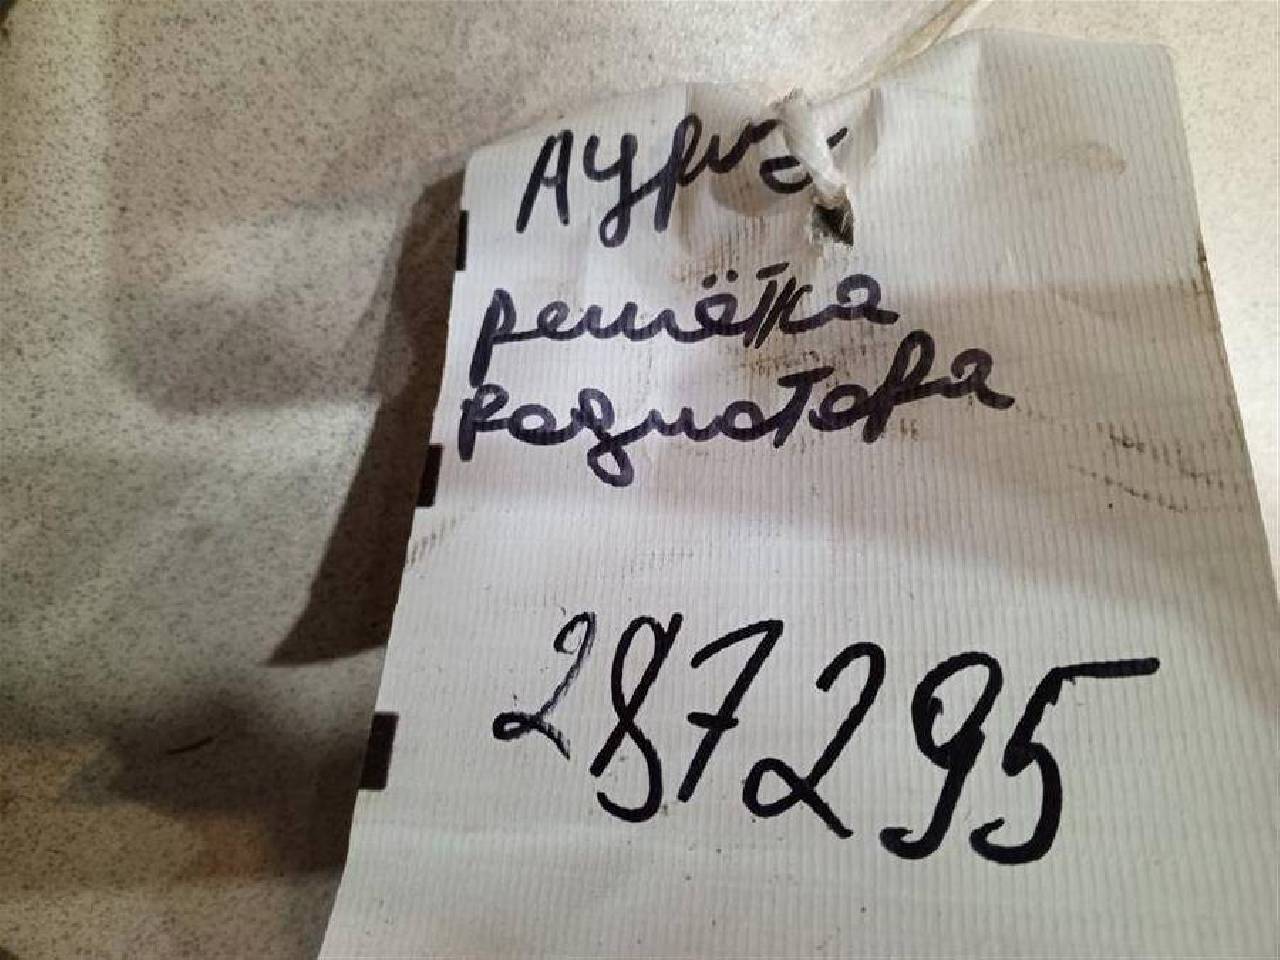 Аурис
решётка
радиатора
287295